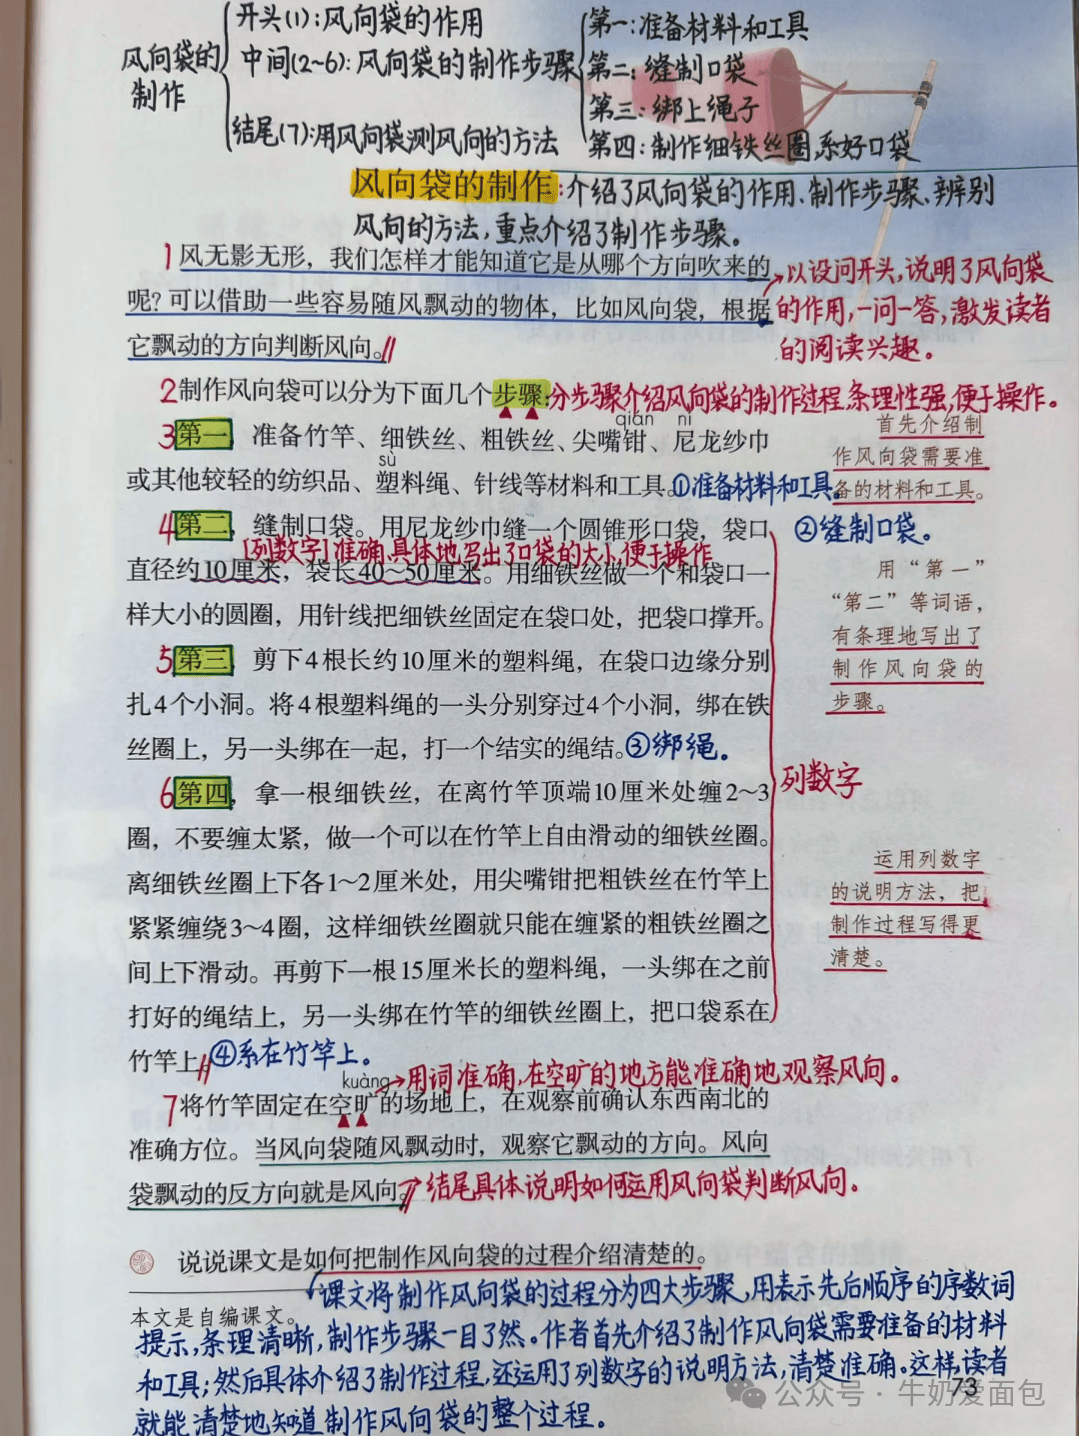 风向袋的制作
开头(1):风向袋的作用
中间(2~6):风向袋的制作步骤
结尾(7):用风向袋测风向的方法
第一:准备材料和工具
第二:缝制口袋
第三:绑上绳子
第四:制作细铁丝圈,系好口袋
风向袋的制作:介绍了风向袋的作用、制作步骤、辨别
风向的方法,重点介绍了制作步骤。
1 风无影无形，我们怎样才能知道它是从哪个方向吹来的
呢？可以借助一些容易随风飘动的物体，比如风向袋，根据
它飘动的方向判断风向。
以设问开头,说明了风向袋
的作用,一问一答,激发读者
的阅读兴趣。
2 制作风向袋可以分为下面几个步骤：
分步骤介绍风向袋的制作过程,条理性强,便于操作。
qián ní
3 第一，准备竹竿、细铁丝、粗铁丝、尖嘴钳、尼龙纱巾
sù
或其他较轻的纺织品、塑料绳、针线等材料和工具。①准备材料和工具。
首先介绍制
作风向袋需要准
备的材料和工具。
4 第二，缝制口袋。用尼龙纱巾缝一个圆锥形口袋，袋口
②缝制口袋。
[列数字]准确、具体地写出了口袋的大小,便于操作
直径约10厘米，袋长40～50厘米。用细铁丝做一个和袋口一
样大小的圆圈，用针线把细铁丝固定在袋口处，把袋口撑开。
用“第一”
“第二”等词语，
有条理地写出了
制作风向袋的
步骤。
5 第三，剪下4根长约10厘米的塑料绳，在袋口边缘分别
扎4个小洞。将4根塑料绳的一头分别穿过4个小洞，绑在铁
丝圈上，另一头绑在一起，打一个结实的绳结。③绑绳。
列数字
6 第四，拿一根细铁丝，在离竹竿顶端10厘米处缠2～3
圈，不要缠太紧，做一个可以在竹竿上自由滑动的细铁丝圈。
离细铁丝圈上下各1～2厘米处，用尖嘴钳把粗铁丝在竹竿上
紧紧缠绕3～4圈，这样细铁丝圈就只能在缠紧的粗铁丝圈之
间上下滑动。再剪下一根15厘米长的塑料绳，一头绑在之前
打好的绳结上，另一头绑在竹竿的细铁丝圈上，把口袋系在
竹竿上。④系在竹竿上。
运用列数字
的说明方法，把
制作过程写得更
清楚。
kuàng
用词准确,在空旷的地方能准确地观察风向。
7 将竹竿固定在空旷的场地上，在观察前确认东西南北的
准确方位。当风向袋随风飘动时，观察它飘动的方向。风向
袋飘动的反方向就是风向。
结尾具体说明如何运用风向袋判断风向。
说说课文是如何把制作风向袋的过程介绍清楚的。
本文是自编课文。
课文将制作风向袋的过程分为四大步骤,用表示先后顺序的序数词
提示,条理清晰,制作步骤一目了然。作者首先介绍了制作风向袋需要准备的材料
和工具;然后具体介绍了制作过程,还运用了列数字的说明方法,清楚准确。这样,读者
就能清楚地知道制作风向袋的整个过程。
73
公众号·牛奶爱面包